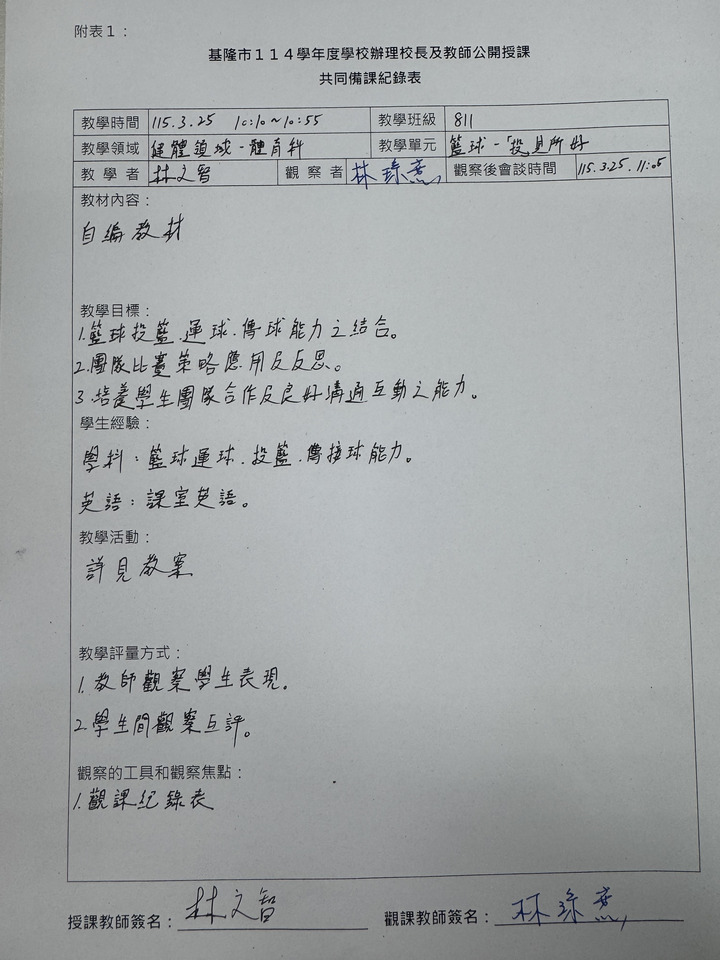 附表１：
基隆市１１４學年度學校辦理校長及教師公開授課
共同備課紀錄表
教學時間 115.3.25 10:10～10:55 教學班級 811
教學領域 健體領域-體育科 教學單元 籃球-「投」其所好
教學者 林文智 觀察者 林 觀察後會談時間 115.3.25.11:05
教材內容：
自編教材
教學目標：
1.籃球投籃.運球.傳球能力之結合。
2.團隊比賽策略應用及反思。
3.培養學生團隊合作及良好溝通互動之能力。
學生經驗：
學科：籃球運球.投籃.傳接球能力。
英語：課室英語。
教學活動：
詳見教案
教學評量方式：
1.教師觀察學生表現。
2.學生間觀察互評。
觀察的工具和觀察焦點：
1.觀課紀錄表
授課教師簽名：林文智 觀課教師簽名：林